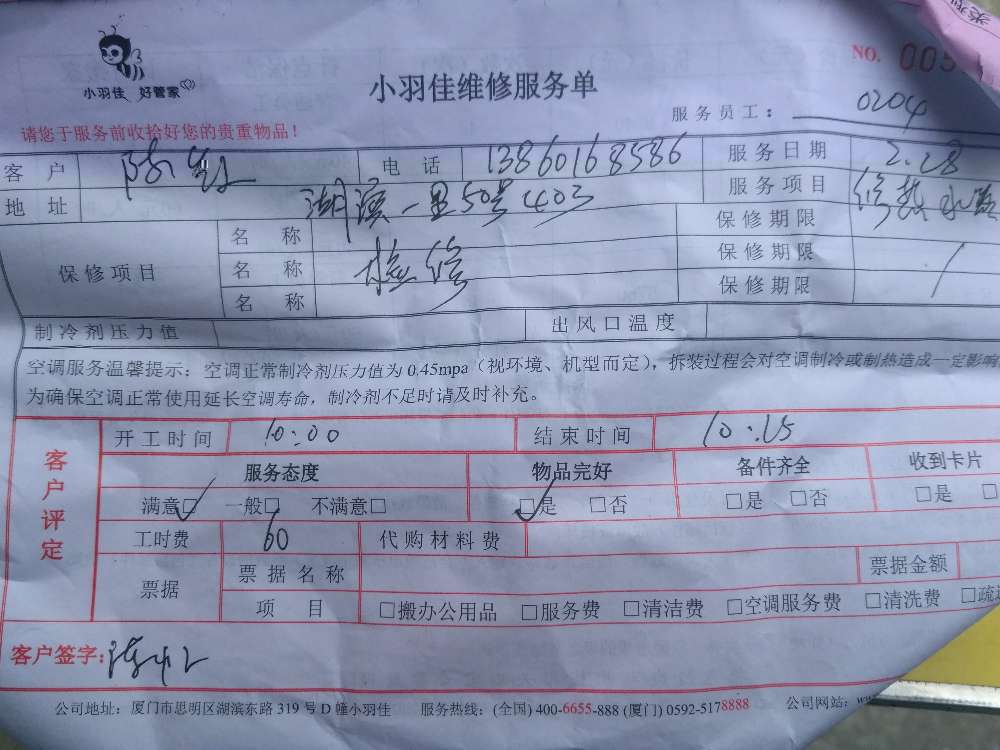 类型
NO. 005
小羽佳 好管家
小羽佳维修服务单
服务员工: 0204
请您于服务前收拾好您的贵重物品!
客户 陈 电话 13860168586 服务日期 2.28
地址 湖滨一里50号403 服务项目 修热水器
保修项目 名称 保修期限
名称 检修 保修期限 /
名称 保修期限
制冷剂压力值 出风口温度
空调服务温馨提示:空调正常制冷剂压力值为0.45mpa(视环境、机型而定),拆装过程会对空调制冷或制热造成一定影响
为确保空调正常使用延长空调寿命,制冷剂不足时请及时补充。
客户评定 开工时间 10:00 结束时间 10:15
服务态度 物品完好 备件齐全 收到卡片
满意☑ 一般□ 不满意□ ☑是 □否 □是 □否 □是 □
工时费 60 代购材料费
票据 票据名称 票据金额
项目 □搬办公用品 □服务费 □清洁费 □空调服务费 □清洗费 □疏通
客户签字: 陈
公司地址:厦门市思明区湖滨东路319号D幢小羽佳 服务热线:(全国) 400-6655-888 (厦门) 0592-5178888 公司网站:ww